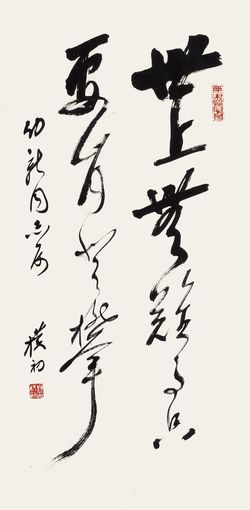 世上無難事只
要肯登攀
幼 同志属
樸初